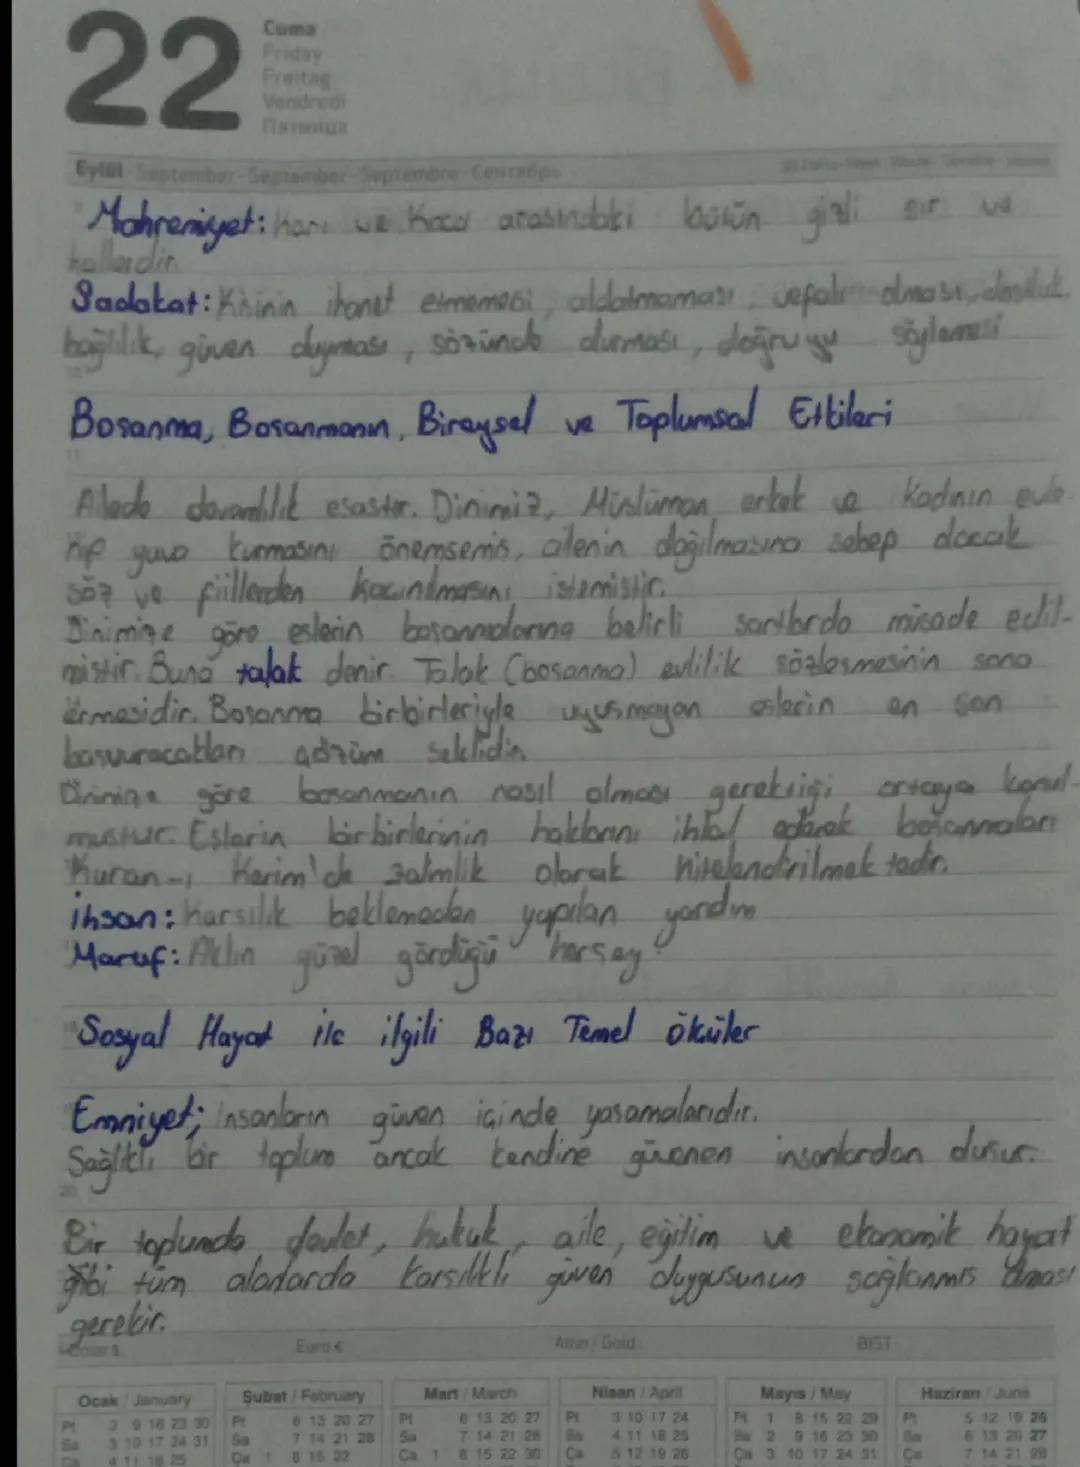 22
Cuma
Friday
Freitag
Vendredi
Пятница
Eylül September - September - Septembre - Сентябрь
Mahremiyet: Karı ve Koca arasındaki bütün gizli sır ve
hallerdir.
Sadakat: Kisinin ihanet etmemesi, aldatmaması, vefalı olması, dostluk,
bağlılık, güven duyması, sözünde durması, doğruyu söylemesi
Bosanma, Bosanmanın, Bireysel ve Toplumsal Etkileri
11
Ailede devamlılık esastır. Dinimiz, Müslüman erkek ve Kadının evle-
nip yuva kurmasını önemsemis, ailenin dağılmasına sebep olacak
söz ve fiillerden kacınılmasını istemistir.
Dinimize göre eslerin bosanmalarına belirli sartlarda müsade edil-
mistir. Buna talak denir. Talak (bosanma) evlilik sözlesmesinin sona
ermesidir. Bosanma birbirleriyle uyusmayan eslerin en son
basvuracakları çözüm seklidir.
Dinimize göre bosanmanın nasıl olması gerektiği ortaya konul-
mustur. Eslerin birbirlerinin haklarını ihlal ederek bosanmaları
Kuran-ı Kerim'de zalimlik olarak nitelendirilmektedir.
ihsan: Karsılık beklemeden yapılan yardım
Maruf: Aklın güzel gördüğü hersey
Sosyal Hayat ile ilgili Bazı Temel ölküler
Emniyet; İnsanların güven içinde yasamalarıdır.
Sağlıklı bir toplum ancak kendine güvenen insanlardan olusur.
20
Bir toplumda devlet, hukuk, aile, eğitim ve ekonomik hayat
gibi tüm alanlarda karsılıklı güven duygusunun sağlanmıs olması
gerekir.
Dolar $ Euro € Altın / Gold BIST
Ocak / January Şubat / February Mart / March Nisan / April Mayıs / May Haziran / June
Pt 2 9 16 23 30 Pt 6 13 20 27 Pt 6 13 20 27 Pt 3 10 17 24 Pt 1 8 15 22 29 Pt 5 12 19 26
Sa 3 10 17 24 31 Sa 7 14 21 28 Sa 7 14 21 28 Sa 4 11 18 25 Sa 2 9 16 23 30 Sa 6 13 20 27
Ça 4 11 18 25 Ça 1 8 15 22 Ça 1 8 15 22 Ça 5 12 19 26 Ça 3 10 17 24 31 Ça 7 14 21 28